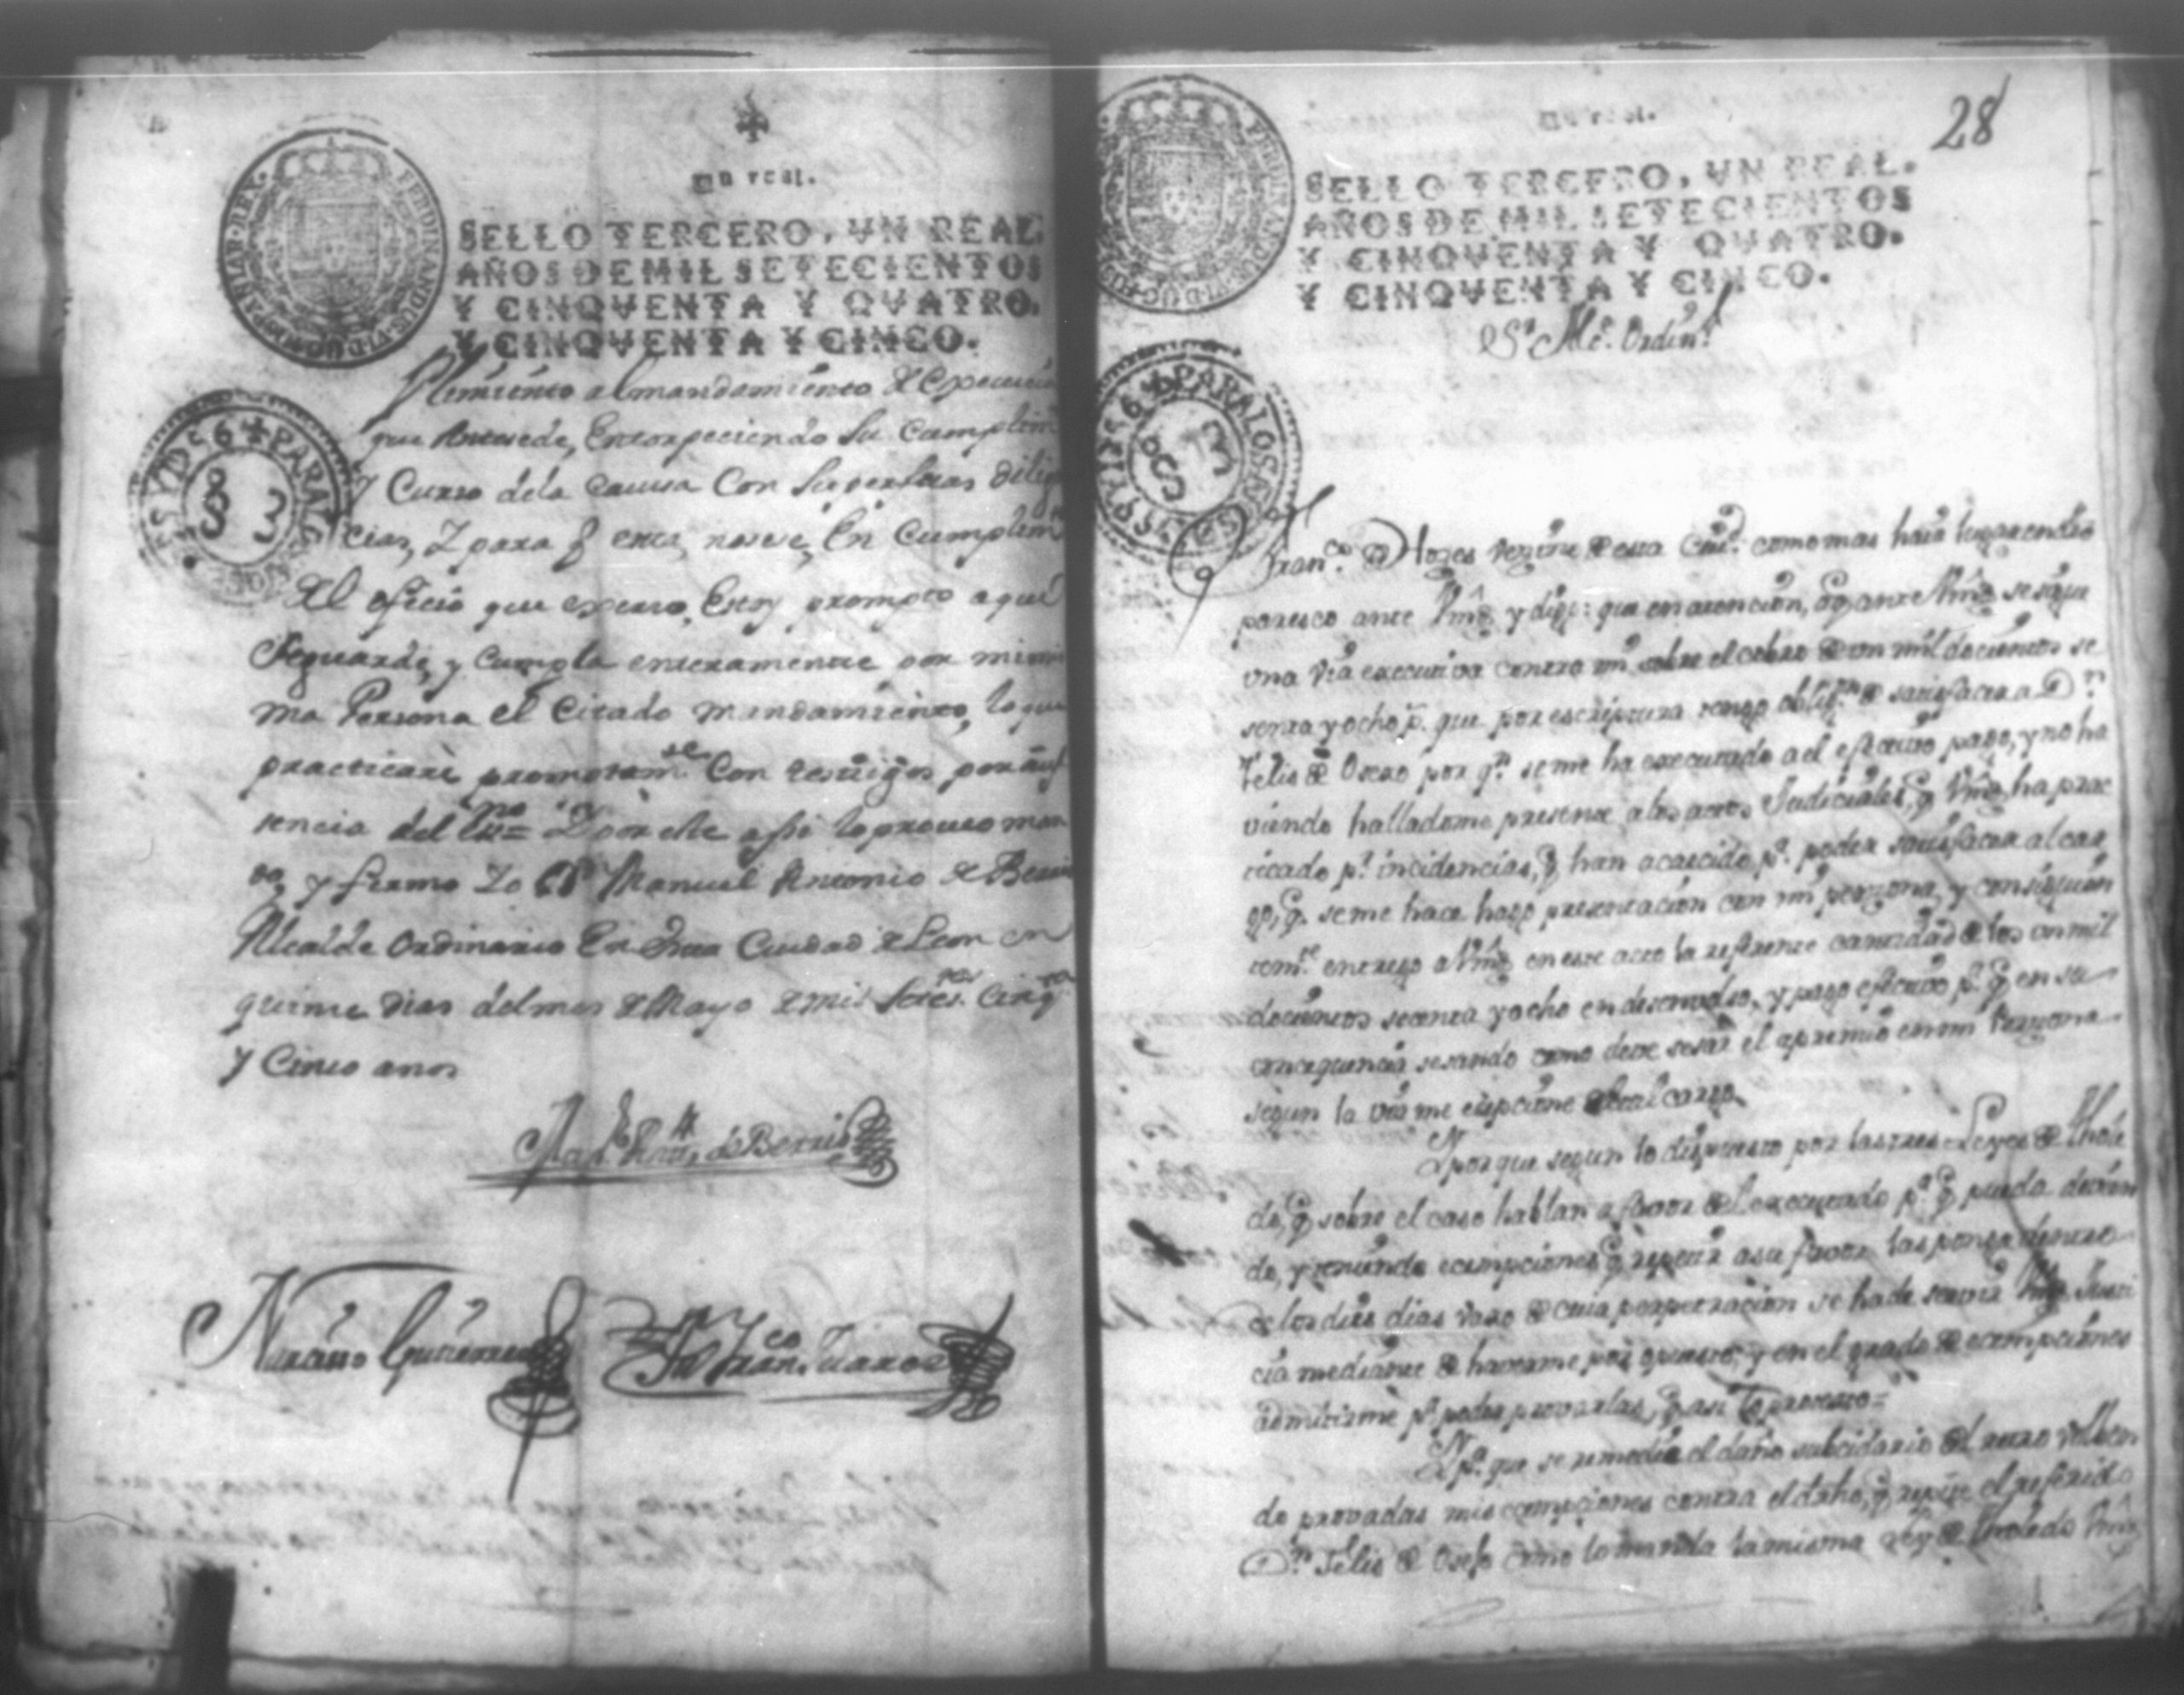 un real.
SELLO TERCERO, VN REAL,
AÑOS DE MIL SETECIENTOS
Y CINQVENTA Y QVATRO,
Y CINQVENTA Y CINCO.
FERDINANDUS VI D G HISPANIAR REX
PARA LOS AÑOS DE 55 Y DE 56
al mandamiento de
que Antesede, Entorpeciendo su Cumplim
Y Curso dela Causa Con
cias, Y para q esta Cumplim
el oficio que exerso, Estoy prompto aque
Seguarde, y Cumpla enteramente por mi mi
ma Persona el Citado mandamiento, loque
practicaré promptamte Con testigos por au
sencia del Esno = Y por este assi lo proveo man
do, y firmo Yo Dn Manuel Antonio de Berri
Alcalde Ordinario En esta Ciudad de Leon en
quinse dias del mes de Mayo de mil setes Cinqta
Y Cinco anos
Manl Antto de Berrio
Frano Juares
28
un real.
SELLO TERCERO, VN REAL.
AÑOS DE MIL SETECIENTOS
Y CINQVENTA Y QVATRO.
Y CINQVENTA Y CINCO.
Sr Alce. Ordino
PARA LOS AÑOS DE 55 Y DE 56
Franco de Hozes vezino de esta Ciud. como mas haia lugar en dro
paresco ante Vmd y digo: que en atencion, q ante Vmd se sigue
una via executiva contra mi sobre el cobro de un mil docientos se
senta y ocho p. que por escriptura tengo oblign de satisfacer a Dn
Felis de Osejo por qn se me ha executado a el efectivo pago, y no ha
viendo halladome presente a los actos Judiciales, q Vmd ha prac
ticado pr incidencias, q han acaecido pa poder satisfacer al car
go, q se me hace hago presentacion con mi perzona, y consiguien
temte entrego a Vmd en este acto la referente cantidad de los un mil
docientos secenta y ocho en y pago efectivo pa q en su
concequencia sesando como deve sesar el apremio en mi Perzona
segun la via me
Y por que segun lo dispuesto por las tres Leyes de thole
do, q sobre el caso hablan a favor del executado pa q pueda
do, y teniendo ecempciones q repetir a su favor las ponga dentro
de los dies dias vaxo de cuia se ha de servir Vmd Justi
cia mediante de haverme por opuesto, y en el grado de ecempciones
admitirme pa poder provarlas, q asi lo protesto =
Y pa que se remedie el daño subcidario del
do provadas mis ecempciones contra el dicho, q repite el referido
Dn Felis de Osejo como lo manda la misma Ley de tholedo Vmd